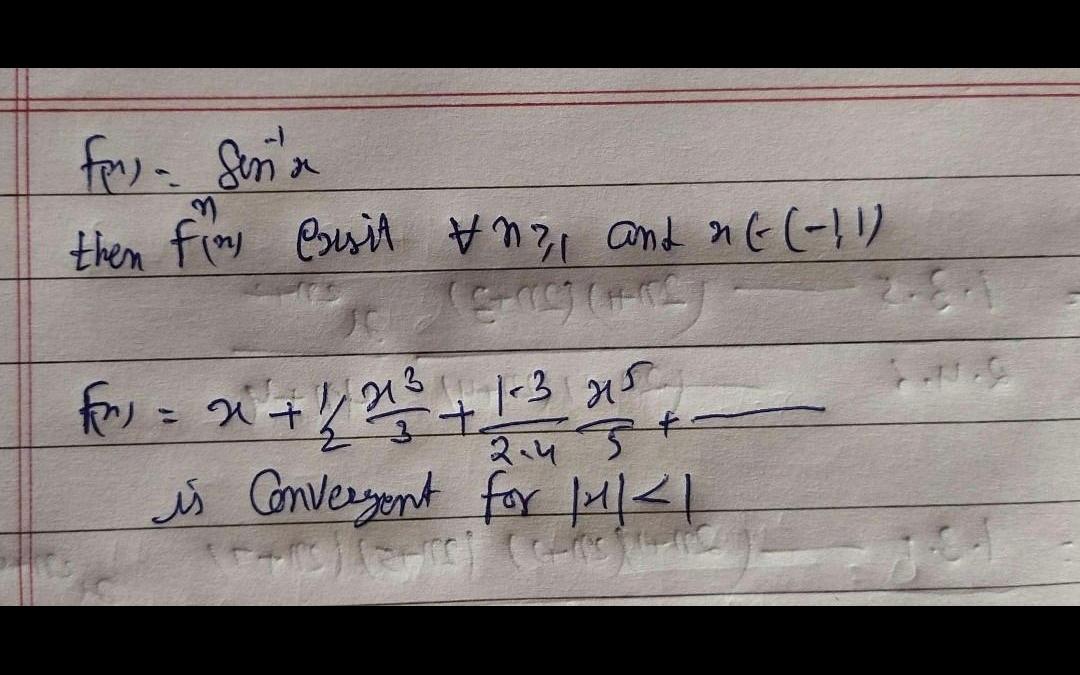 f(x) = Sin⁻¹x
then fⁿ(x) exsit ∀ n ≥ 1 and x ∈ (-1, 1)
f(x) = x + 1/2 x³/3 + 1·3/2·4 x⁵/5 + ———
is Convergent for |x| < 1